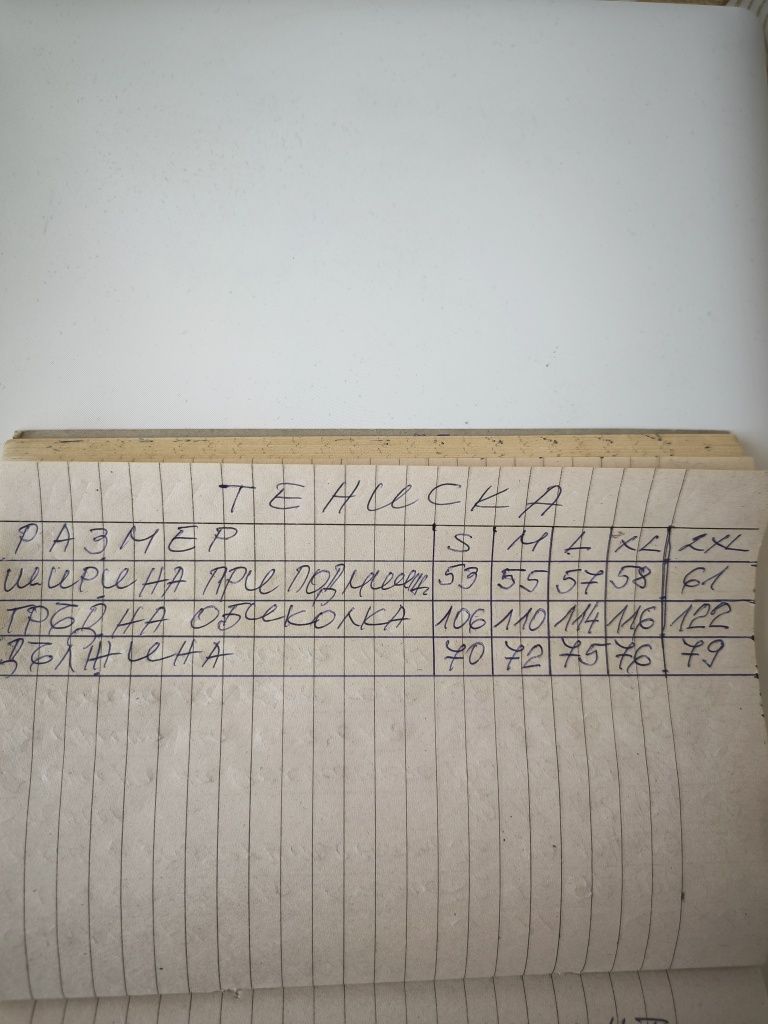 ТЕНИСКА
РАЗМЕР S M L XL 2XL
ШИРИНА ПРИ ПОДМИШН. 53 55 57 58 61
ГРЪДНА ОБИКОЛКА 106 110 114 116 122
ДЪЛЖИНА 70 72 75 76 79